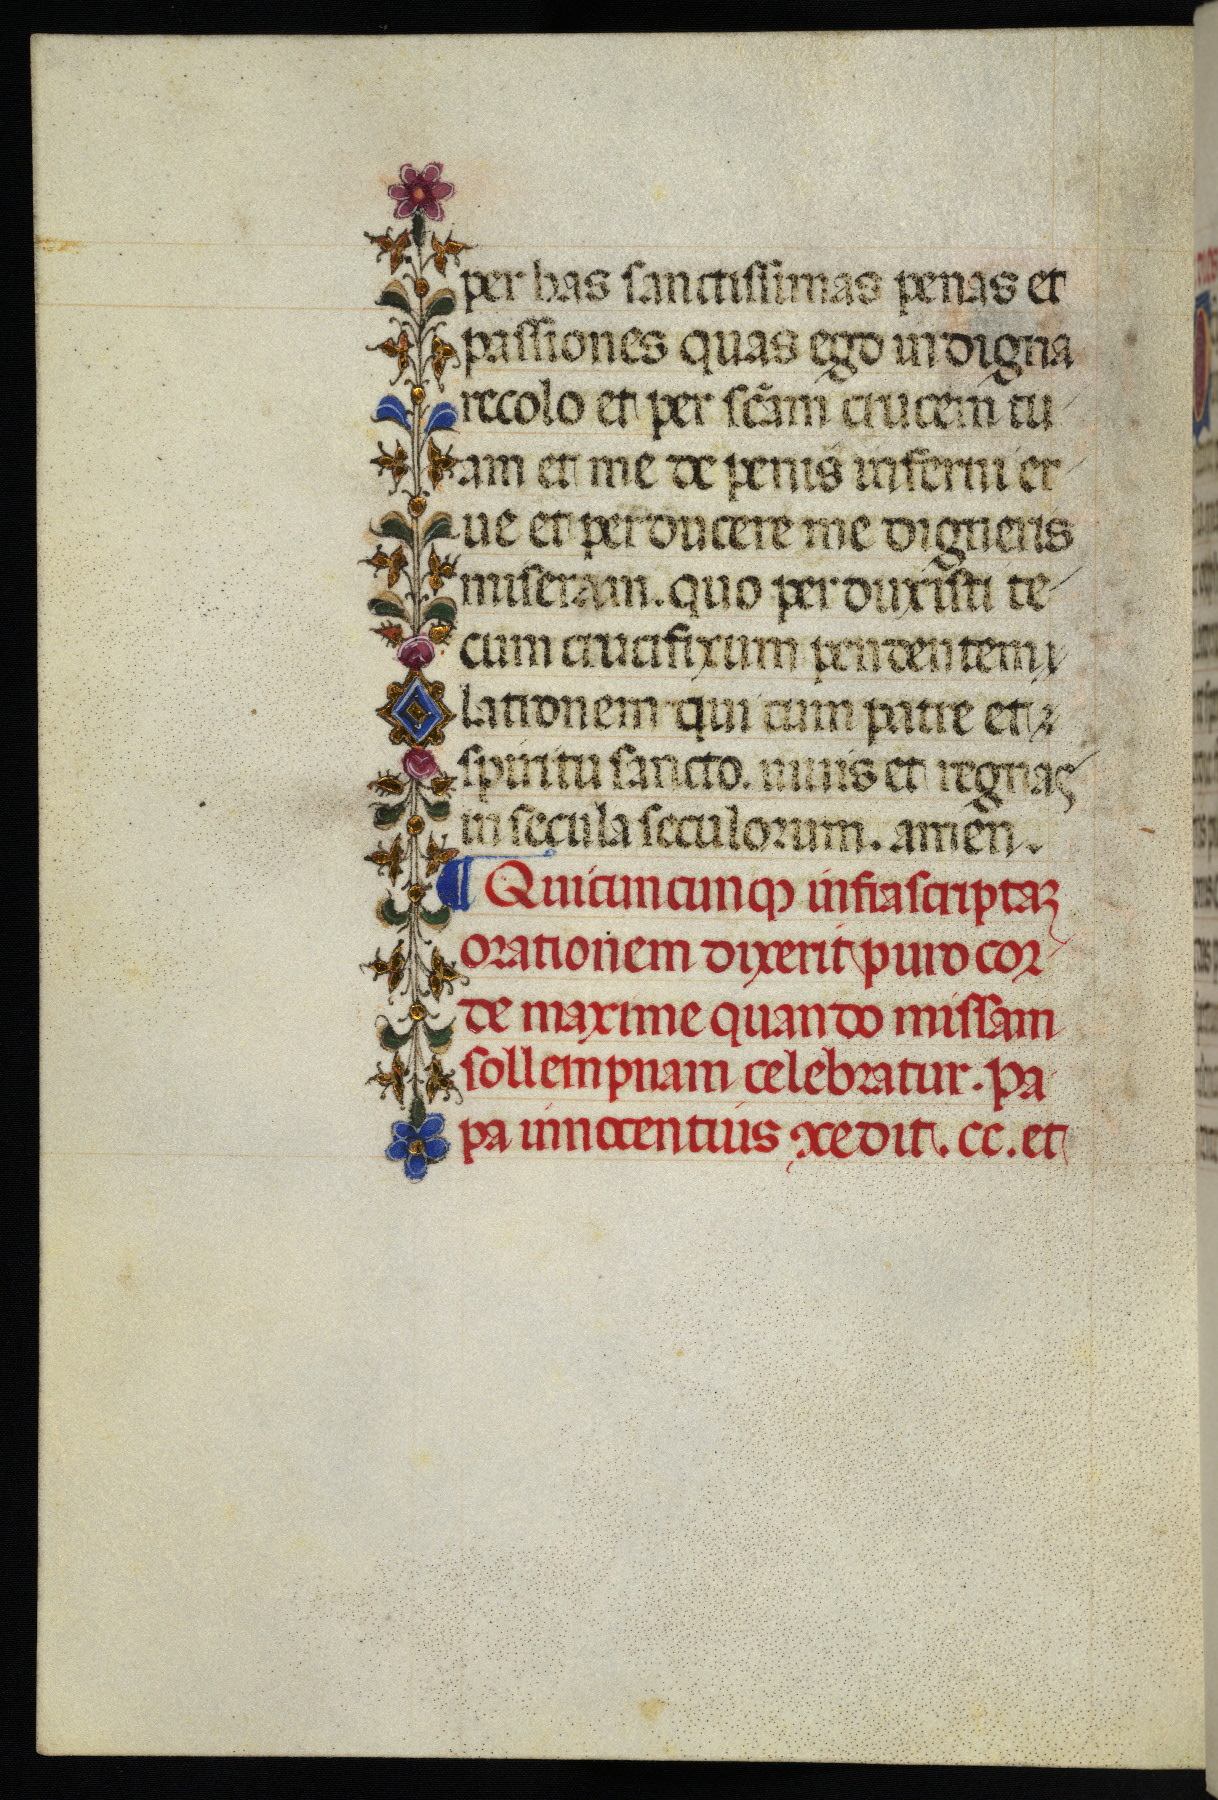 per has sanctissimas penas et
passiones quas ego indigna
recolo et per scãm crucem tu
am et me de penis inferni er
ue et perducere me digneris
miseram. quo perduxisti te
cum crucifixum pendentem
lationem qui cum patre et
spiritu sancto. uiuis et regnas
in secula seculorum. amen.
¶ Quicuncunqꝫ infrascriptaꝫ
orationem dixerit puro cor
de maxime quando missam
sollempnam celebratur. Pa
pa innocentius xedit. cc. et